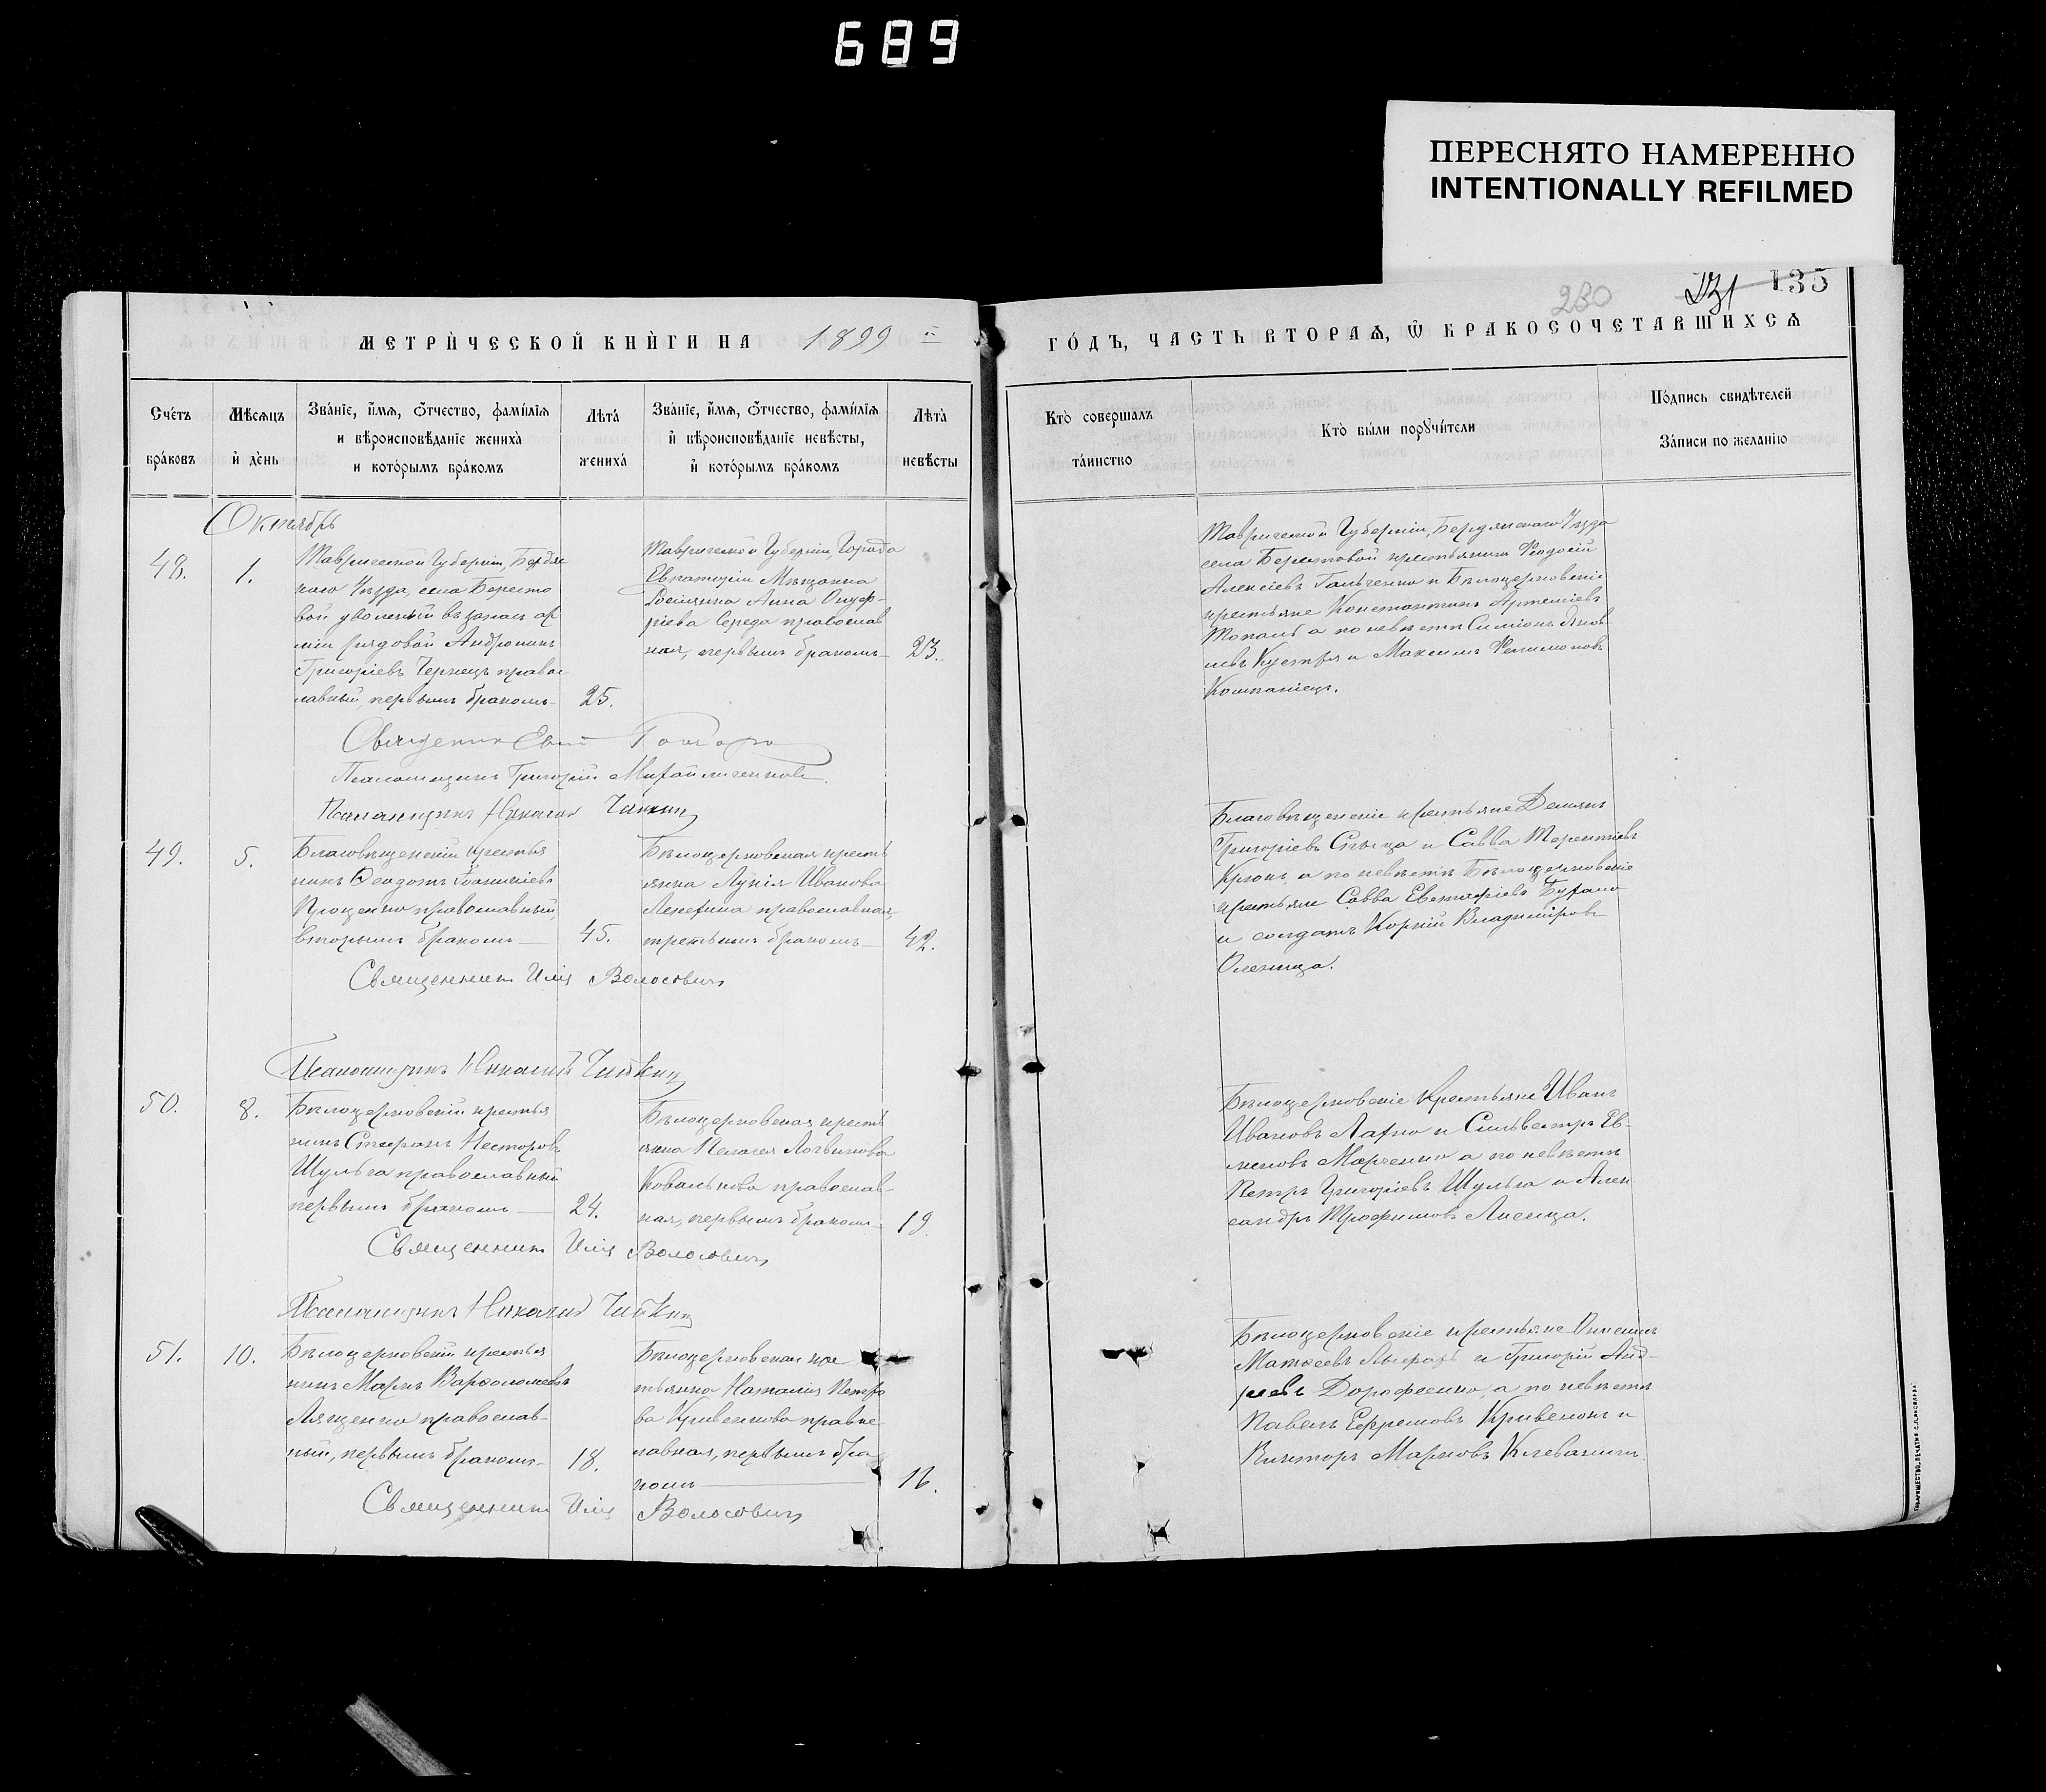 689
ПЕРЕСНЯТО НАМЕРЕННО
INTENTIONALLY REFILMED
230
231 135
МЕТРИ́ЧЕСКОЙ КНИ́ГИ НА 1899 й
ГО́ДЪ, ЧАСТЬ ВТОРАѦ, Ѿ БРАКОСОЧЕТАВШИХСѦ
Сче́тъ
бра́ковъ
Мѣ́сѧцъ
и҆ де́нь
Зва́нїе, и҆́мѧ, ѻ҆́тчество, фами́лїѧ
и вѣроисповѣ́данїе жениха̀
и кото́рымъ бра́комъ
Лѣта̀
жениха̀
Зва́нїе, и҆́мѧ, ѻ҆́тчество, фами́лїѧ
и҆ вѣроисповѣ́данїе невѣ́сты,
и҆ кото́рымъ бра́комъ
Лѣта̀
невѣ́сты
Кто̀ соверша́лъ
та́инство
Кто̀ бы́ли порꙋчи́тели
По́дпись свидѣ́телей
За́писи по жела́нїю
Октябрь
48.
1.
Таврической Губерніи, Бердян
скаго Уѣзда, села Бересто
вой уволенный въ запасъ ар
міи рядовой Андроникъ
Григоріевъ Чернецъ правос
лавный, первымъ бракомъ
25.
Таврической Губерніи, Города
Евпаторіи Мѣщанка
Анна Онуф-
ріева Середа православ
ная, первымъ бракомъ
23.
Таврической Губерніи, Бердянскаго Уѣзда
села Берестовой крестьянинъ Феодосій
Алексіевъ Гальченко и Бѣлоцерковскіе
крестьяне Константинъ Артеміевъ
а по невѣстѣ Симіонъ Яков
левъ и Максимъ Филимоновъ
Компаніецъ.
Священник
Псаломщикъ Григорій Михайличенков
Псаломщикъ Николай
49.
5.
Благовѣщенскій крестья
нинъ Феодотъ
Проценко православный,
вторымъ бракомъ
45.
Бѣлоцерковская кресть
янка Лукія Иванова
православная,
третьимъ бракомъ
42.
Благовѣщенскіе крестьяне Демянъ
Григоріевъ и Савва Терентіевъ
а по невѣстѣ Бѣлоцерковскіе
крестьяне Савва Евстафіевъ
и солдатъ Корній Владиміровъ
Священникъ Илія Волосовичъ
Псаломщикъ Николай
50.
8.
Бѣлоцерковскій крестья
нинъ Стефанъ Несторовъ
Шульга православный
первымъ бракомъ
24.
Бѣлоцерковская кресть
янка Пелагея Логвинова
Ковалькова православ-
ная, первымъ бракомъ
19.
Бѣлоцерковскіе Крестьяне Иванъ
Ивановъ Лахно и Сильвестръ Ев-
Марченко а по невѣстѣ
Петръ Григоріевъ Шульга и Алек
сандръ Трофимовъ Лисица.
Священникъ Илія Волосовичъ
Псаломщикъ Николай
51.
10.
Бѣлоцерковскій крестья
нинъ Маркъ Варѳоломеевъ
Лященко православ-
ный, первымъ бракомъ
18.
Бѣлоцерковская кре
стьянка Наталія Петро
ва Кривенкова правос
лавная, первымъ бра
комъ
16.
Бѣлоцерковскіе крестьяне
Матѳеевъ и Григорій Анд-
реевъ Дорофеенко, а по невѣстѣ
Павелъ Ефремовъ Кривенокъ и
Викторъ Марковъ
Священникъ Илія Волосовичъ